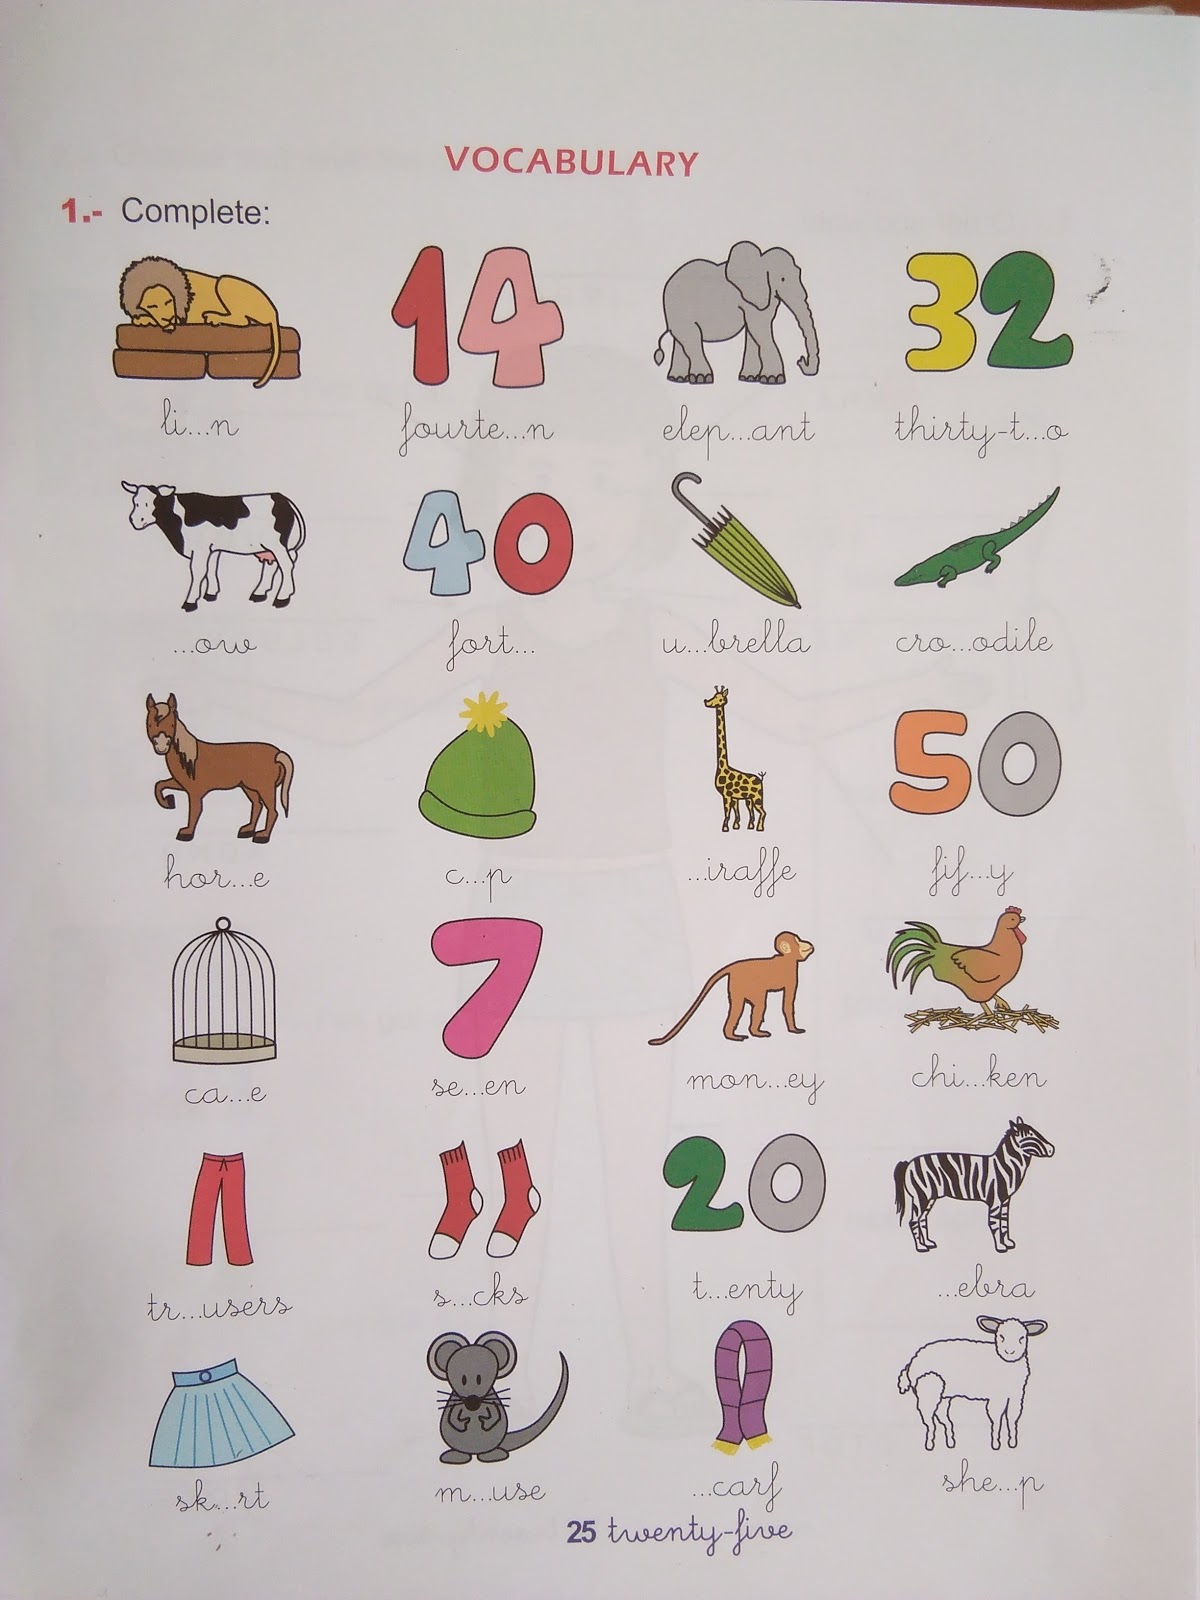 VOCABULARY
1.- Complete:
14 32
li...n fourte...n elep...ant thirty-t...o
40
...ow fort... u...brella cro...odile
50
hor...e c...p ...iraffe fif...y
7
ca...e se...en mon...ey chi...ken
20
tr...users s...cks t...enty ...ebra
sk...rt m...use ...carf she...p
25 twenty-five